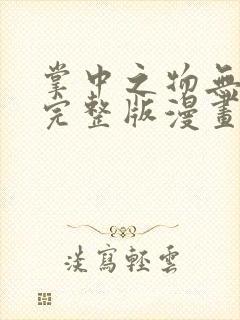 掌中之物無
完整版漫畫
淡寫輕雲